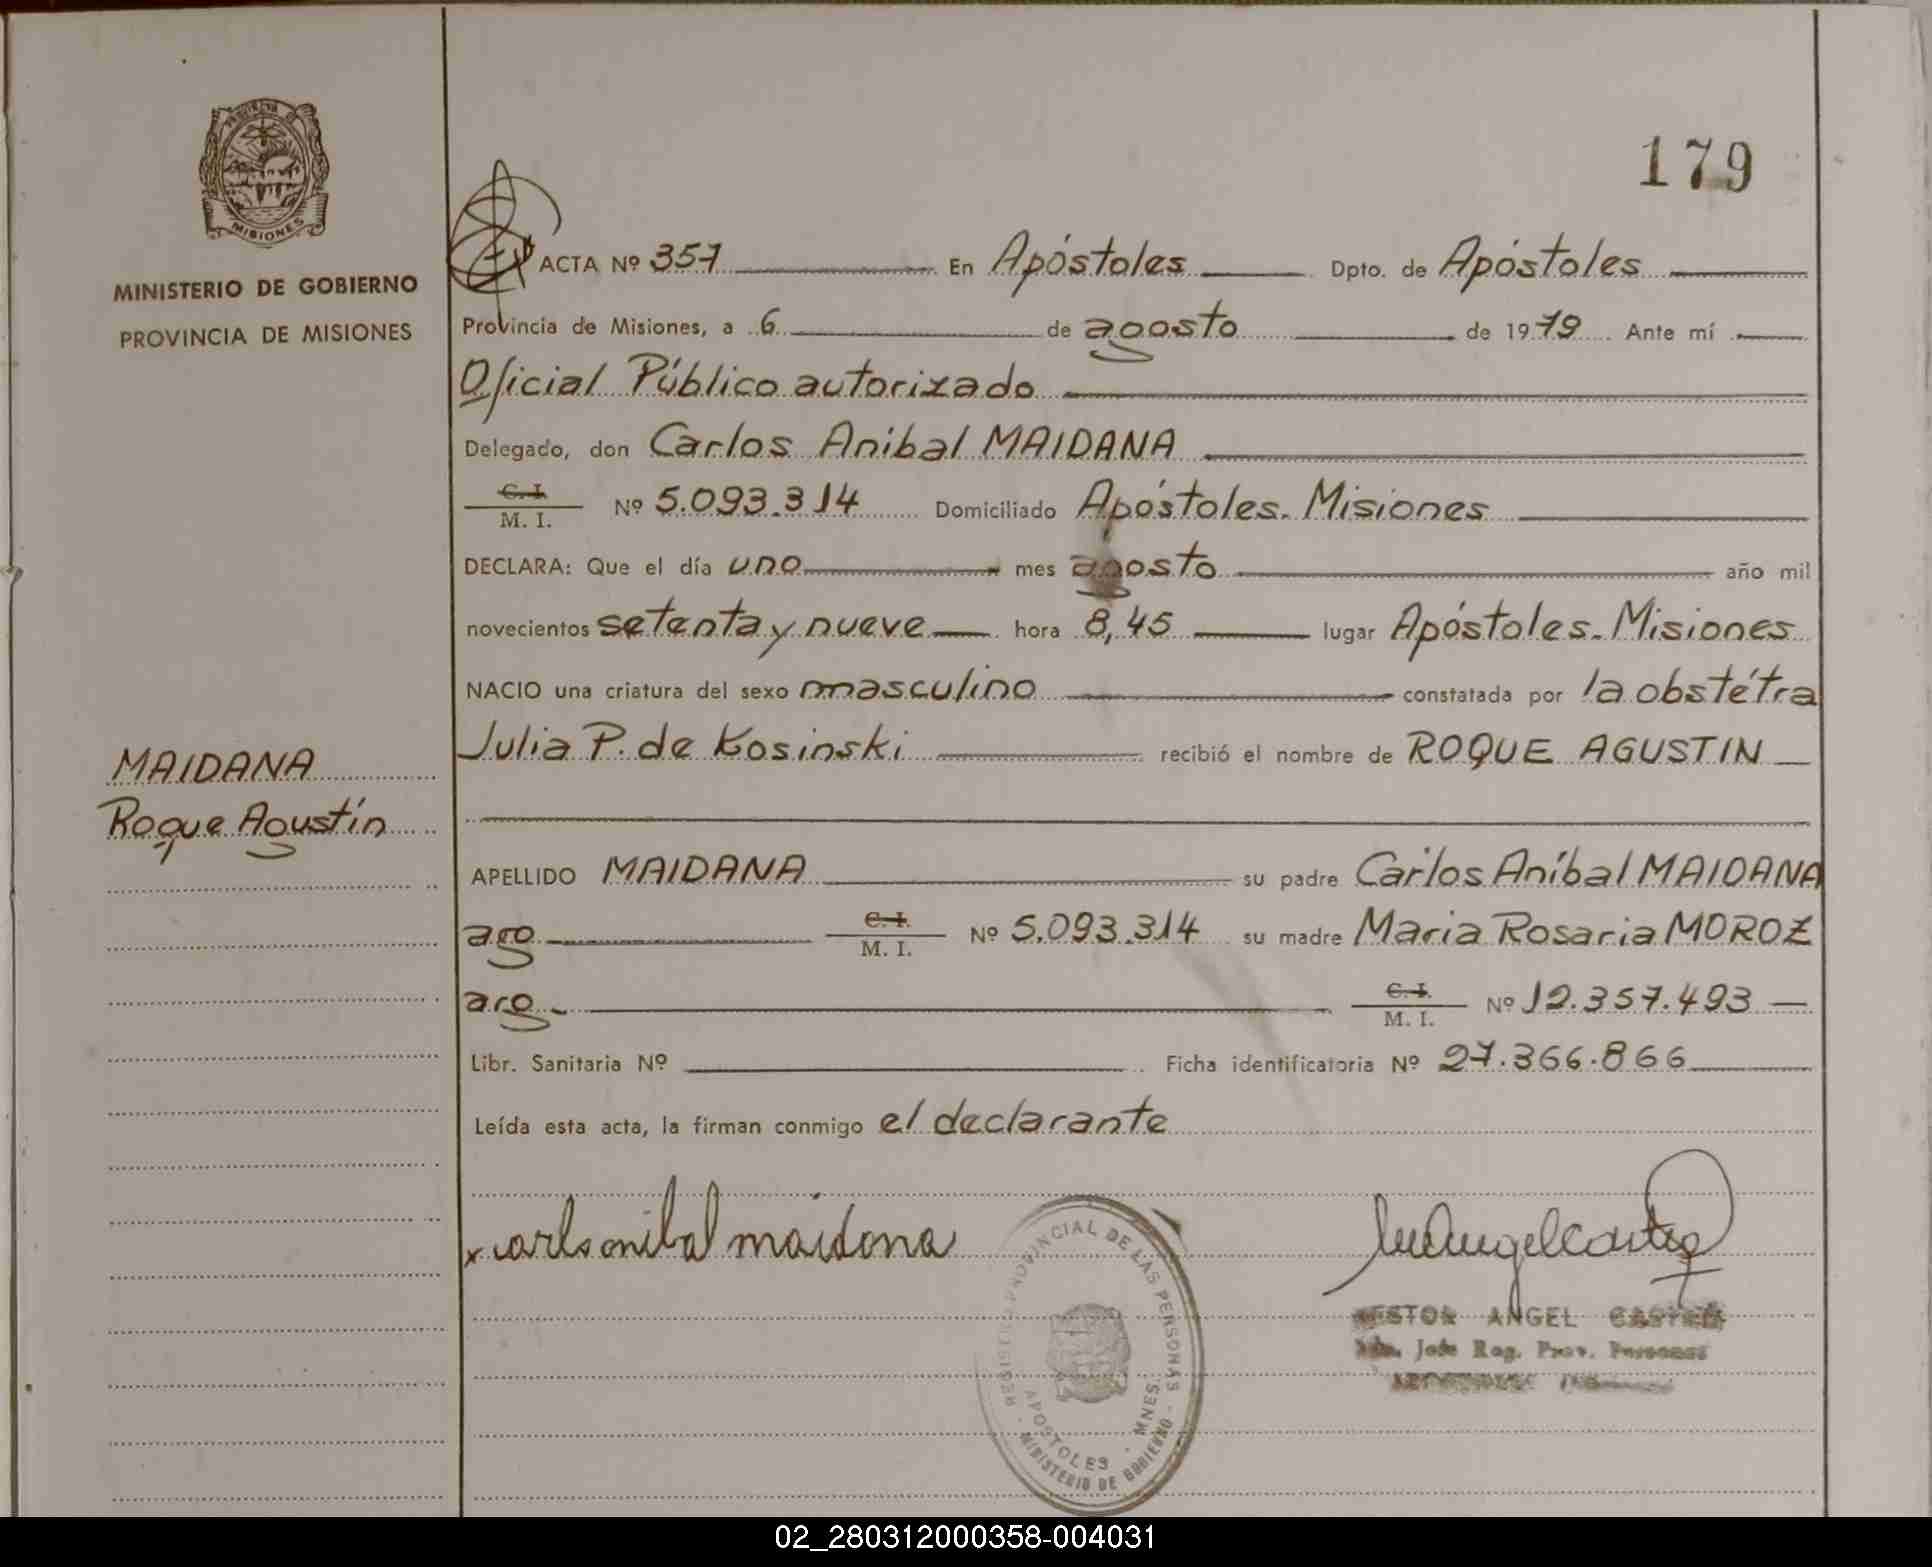 179
MINISTERIO DE GOBIERNO
PROVINCIA DE MISIONES
ACTA Nº 357 En Apóstoles Dpto. de Apóstoles
Provincia de Misiones, a 6 de agosto de 1979 Ante mí
Oficial Público autorizado
Delegado, don Carlos Anibal MAIDANA
C. I.
M. I. Nº 5.093.314 Domiciliado Apóstoles. Misiones
DECLARA: Que el día uno mes agosto año mil
novecientos setenta y nueve hora 8,45 lugar Apóstoles. Misiones
NACIO una criatura del sexo masculino constatada por la obstétra
Julia P. de Kosinski recibió el nombre de ROQUE AGUSTIN
MAIDANA
Roque Agustín
APELLIDO MAIDANA su padre Carlos Aníbal MAIDANA
arg C. I.
M. I. Nº 5.093.314 su madre Maria Rosaria MOROZ
arg. C. I.
M. I. Nº 12.357.493
Libr. Sanitaria Nº Ficha identificatoria Nº 27.366.866
Leída esta acta, la firman conmigo el declarante
x carlos anibal maidana
REGISTRO PROVINCIAL DE LAS PERSONAS
APOSTOLES - MNES.
MINISTERIO DE GOBIERNO
NESTOR ANGEL
Jefe Reg. Prov. Personas
02_280312000358-004031